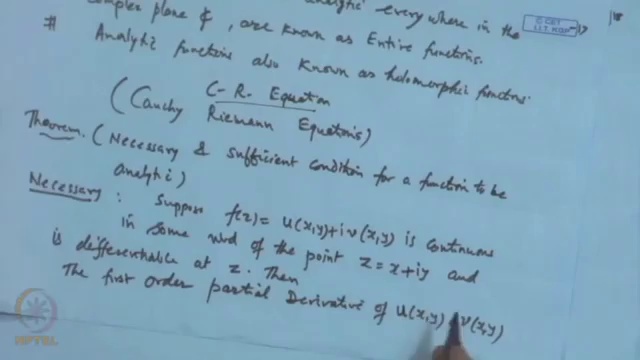 analytic everywhere in the
complex plane ¢, are known as Entire functions.
# Analytic functions also known as holomorphic functions.
C-R. Equation
(Cauchy Riemann Equations)
Theorem. (Necessary & sufficient condition for a function to be
analytic)
Necessary : Suppose f(z) = u(x,y)+iv(x,y) is continuous
in some nbd of the point z = x+iy and
is differentiable at z. Then
The first order partial Derivative of u(x,y) v(x,y)
NPTEL